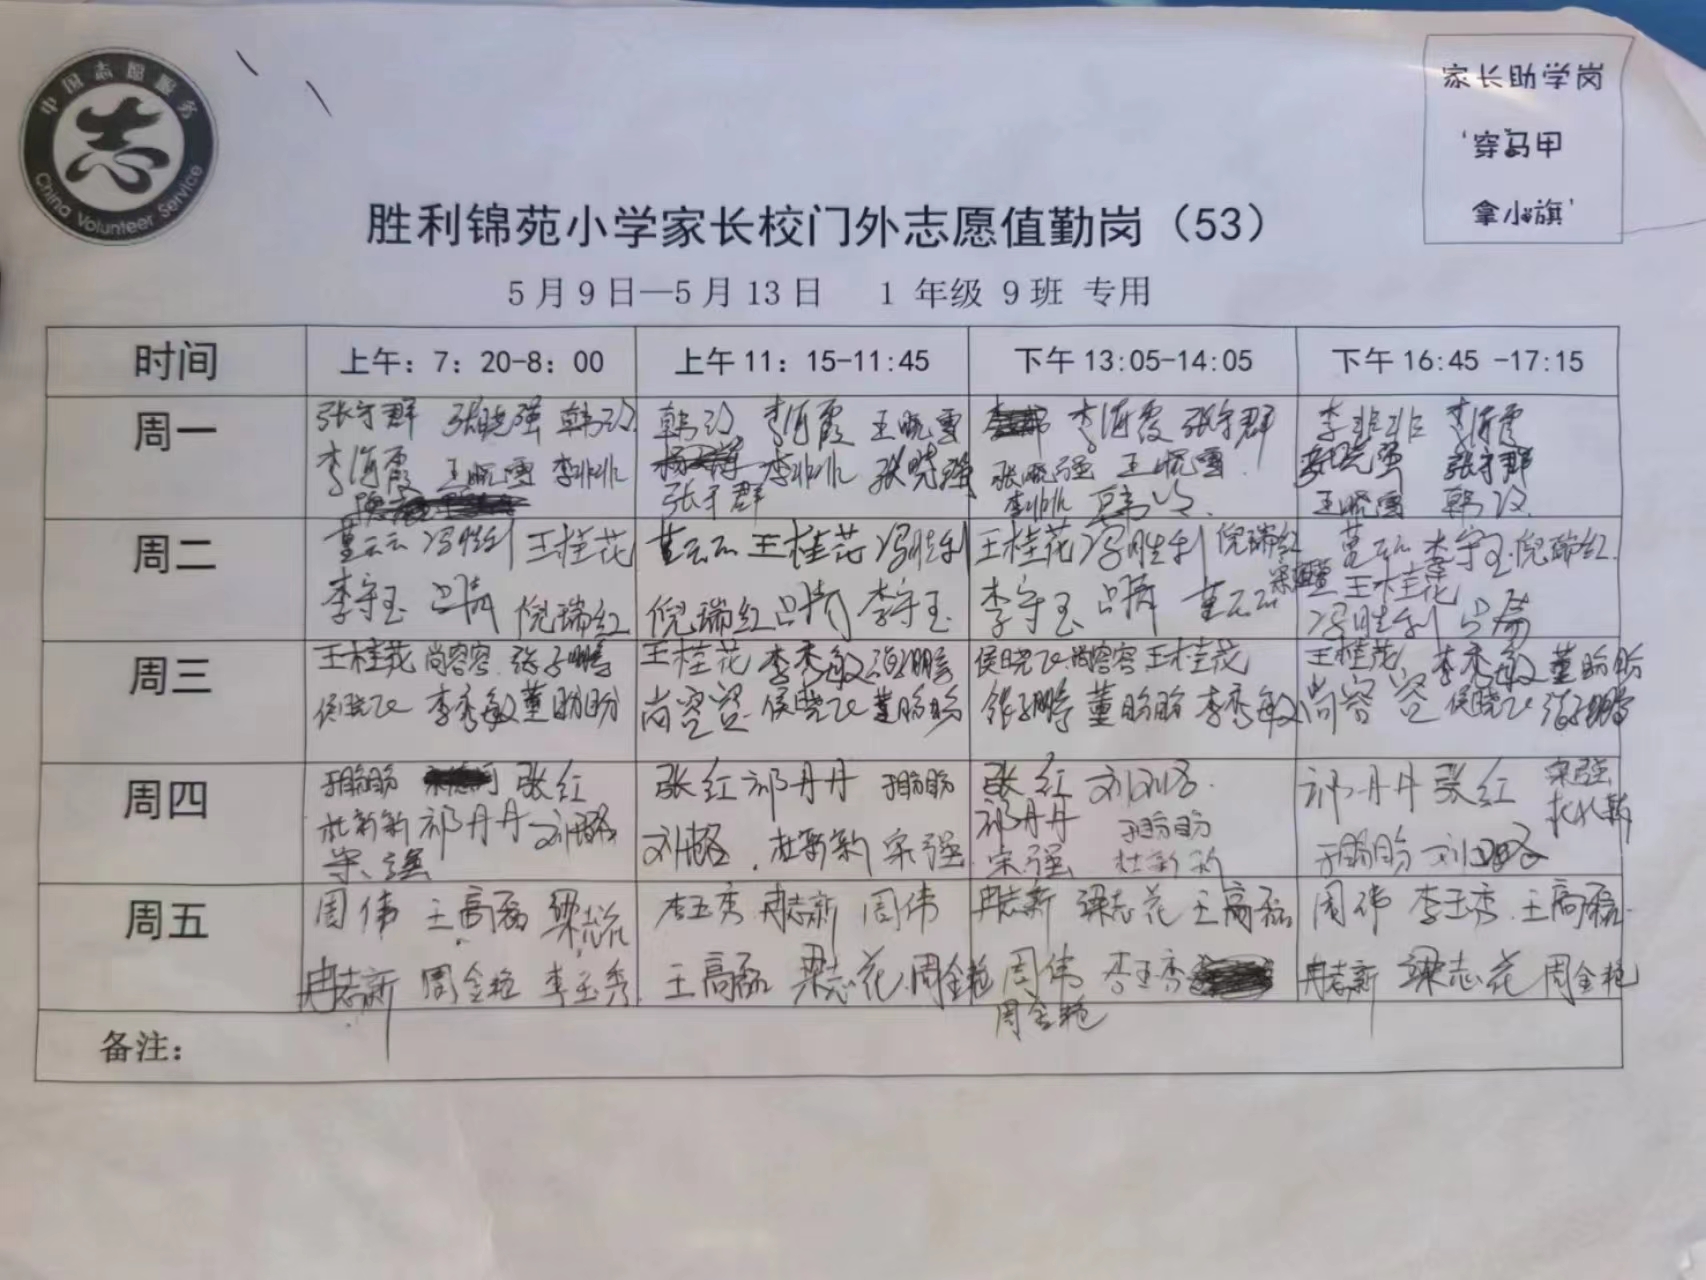 中国志愿服务
志
China Volunteer Service
家长助学岗
'穿马甲
拿小旗'
胜利锦苑小学家长校门外志愿值勤岗（53）
5月9日—5月13日 1 年级 9班 专用
时间 上午：7：20-8：00 上午11：15-11:45 下午13:05-14:05 下午16:45 -17:15
周一
张守群 张晓强 韩玲 韩玲 李海霞 王晓雪 李海霞 张守群 李非非 李海霞
李海霞 王晓雪 李非非 李非非 张晓强 张晓强 王晓雪 张晓强 张守群
张守群 李非非 韩玲 王晓雪 韩玲
周二
董云云 冯胜利 王桂花 董云云 王桂花 冯胜利 王桂花 冯胜利 倪瑞红 董云云 李守玉 倪瑞红
李守玉 吕清 倪瑞红 倪瑞红 吕清 李守玉 李守玉 吕清 董云云 王桂花
冯胜利 吕清
周三
王桂花 尚容容 张子鹏 王桂花 李秀敏 张子鹏 侯晓飞 尚容容 王桂花 王桂花 李秀敏 董盼盼
侯晓飞 李秀敏 董盼盼 尚容容 侯晓飞 董盼盼 张子鹏 董盼盼 李秀敏 尚容容 侯晓飞 张子鹏
周四
于盼盼 张红 张红 祁丹丹 于盼盼 张红 刘 祁丹丹 张红 宋强
杜新新 祁丹丹 刘 刘 杜新新 宋强 祁丹丹 于盼盼 杜新新
宋强 宋强 杜新新 于盼盼 刘
周五
周伟 王高磊 梁志花 李玉秀 冉志新 周伟 冉志新 梁志花 王高磊 周伟 李玉秀 王高磊
冉志新 周金艳 李玉秀 王高磊 梁志花 周金艳 周伟 李玉秀 冉志新 梁志花 周金艳
周金艳
备注：